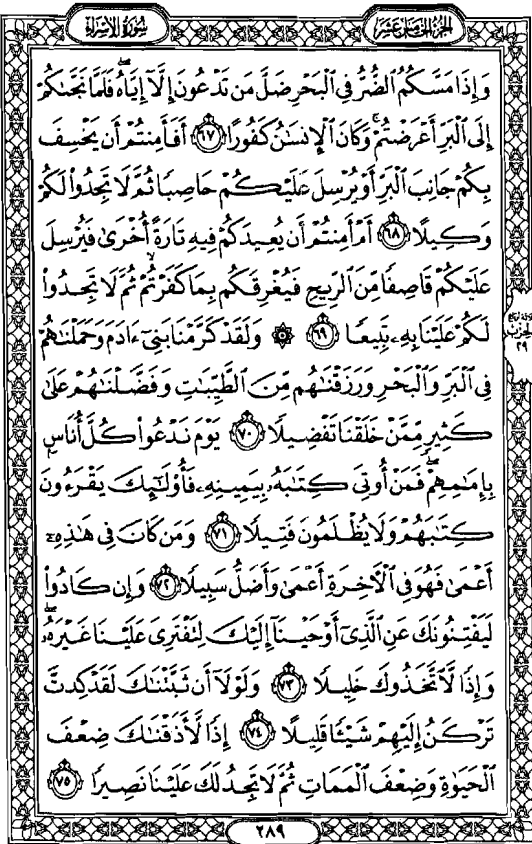 سُورَةُ الإِسْرَاءِ
الجُزْءُ الخَامِسَ عَشَرَ
وَإِذَا مَسَّكُمُ ٱلضُّرُّ فِى ٱلْبَحْرِ ضَلَّ مَن تَدْعُونَ إِلَّآ إِيَّاهُ ۖ فَلَمَّا نَجَّىٰكُمْ
إِلَى ٱلْبَرِّ أَعْرَضْتُمْ ۚ وَكَانَ ٱلْإِنسَـٰنُ كَفُورًا ٦٧ أَفَأَمِنتُمْ أَن يَخْسِفَ
بِكُمْ جَانِبَ ٱلْبَرِّ أَوْ يُرْسِلَ عَلَيْكُمْ حَاصِبًا ثُمَّ لَا تَجِدُوا۟ لَكُمْ
وَكِيلًا ٦٨ أَمْ أَمِنتُمْ أَن يُعِيدَكُمْ فِيهِ تَارَةً أُخْرَىٰ فَيُرْسِلَ
عَلَيْكُمْ قَاصِفًا مِّنَ ٱلرِّيحِ فَيُغْرِقَكُم بِمَا كَفَرْتُمْ ۙ ثُمَّ لَا تَجِدُوا۟
لَكُمْ عَلَيْنَا بِهِۦ تَبِيعًا ٦٩ ۞ وَلَقَدْ كَرَّمْنَا بَنِىٓ ءَادَمَ وَحَمَلْنَـٰهُمْ
فِى ٱلْبَرِّ وَٱلْبَحْرِ وَرَزَقْنَـٰهُم مِّنَ ٱلطَّيِّبَـٰتِ وَفَضَّلْنَـٰهُمْ عَلَىٰ
كَثِيرٍ مِّمَّنْ خَلَقْنَا تَفْضِيلًا ٧٠ يَوْمَ نَدْعُوا۟ كُلَّ أُنَاسٍۭ
بِإِمَـٰمِهِمْ ۖ فَمَنْ أُوتِىَ كِتَـٰبَهُۥ بِيَمِينِهِۦ فَأُو۟لَـٰٓئِكَ يَقْرَءُونَ
كِتَـٰبَهُمْ وَلَا يُظْلَمُونَ فَتِيلًا ٧١ وَمَن كَانَ فِى هَـٰذِهِۦٓ
أَعْمَىٰ فَهُوَ فِى ٱلْـَٔاخِرَةِ أَعْمَىٰ وَأَضَلُّ سَبِيلًا ٧٢ وَإِن كَادُوا۟
لَيَفْتِنُونَكَ عَنِ ٱلَّذِىٓ أَوْحَيْنَآ إِلَيْكَ لِتَفْتَرِىَ عَلَيْنَا غَيْرَهُۥ ۖ
وَإِذًا لَّٱتَّخَذُوكَ خَلِيلًا ٧٣ وَلَوْلَآ أَن ثَبَّتْنَـٰكَ لَقَدْ كِدتَّ
تَرْكَنُ إِلَيْهِمْ شَيْـًٔا قَلِيلًا ٧٤ إِذًا لَّأَذَقْنَـٰكَ ضِعْفَ
ٱلْحَيَوٰةِ وَضِعْفَ ٱلْمَمَاتِ ثُمَّ لَا تَجِدُ لَكَ عَلَيْنَا نَصِيرًا ٧٥
٢٨٩